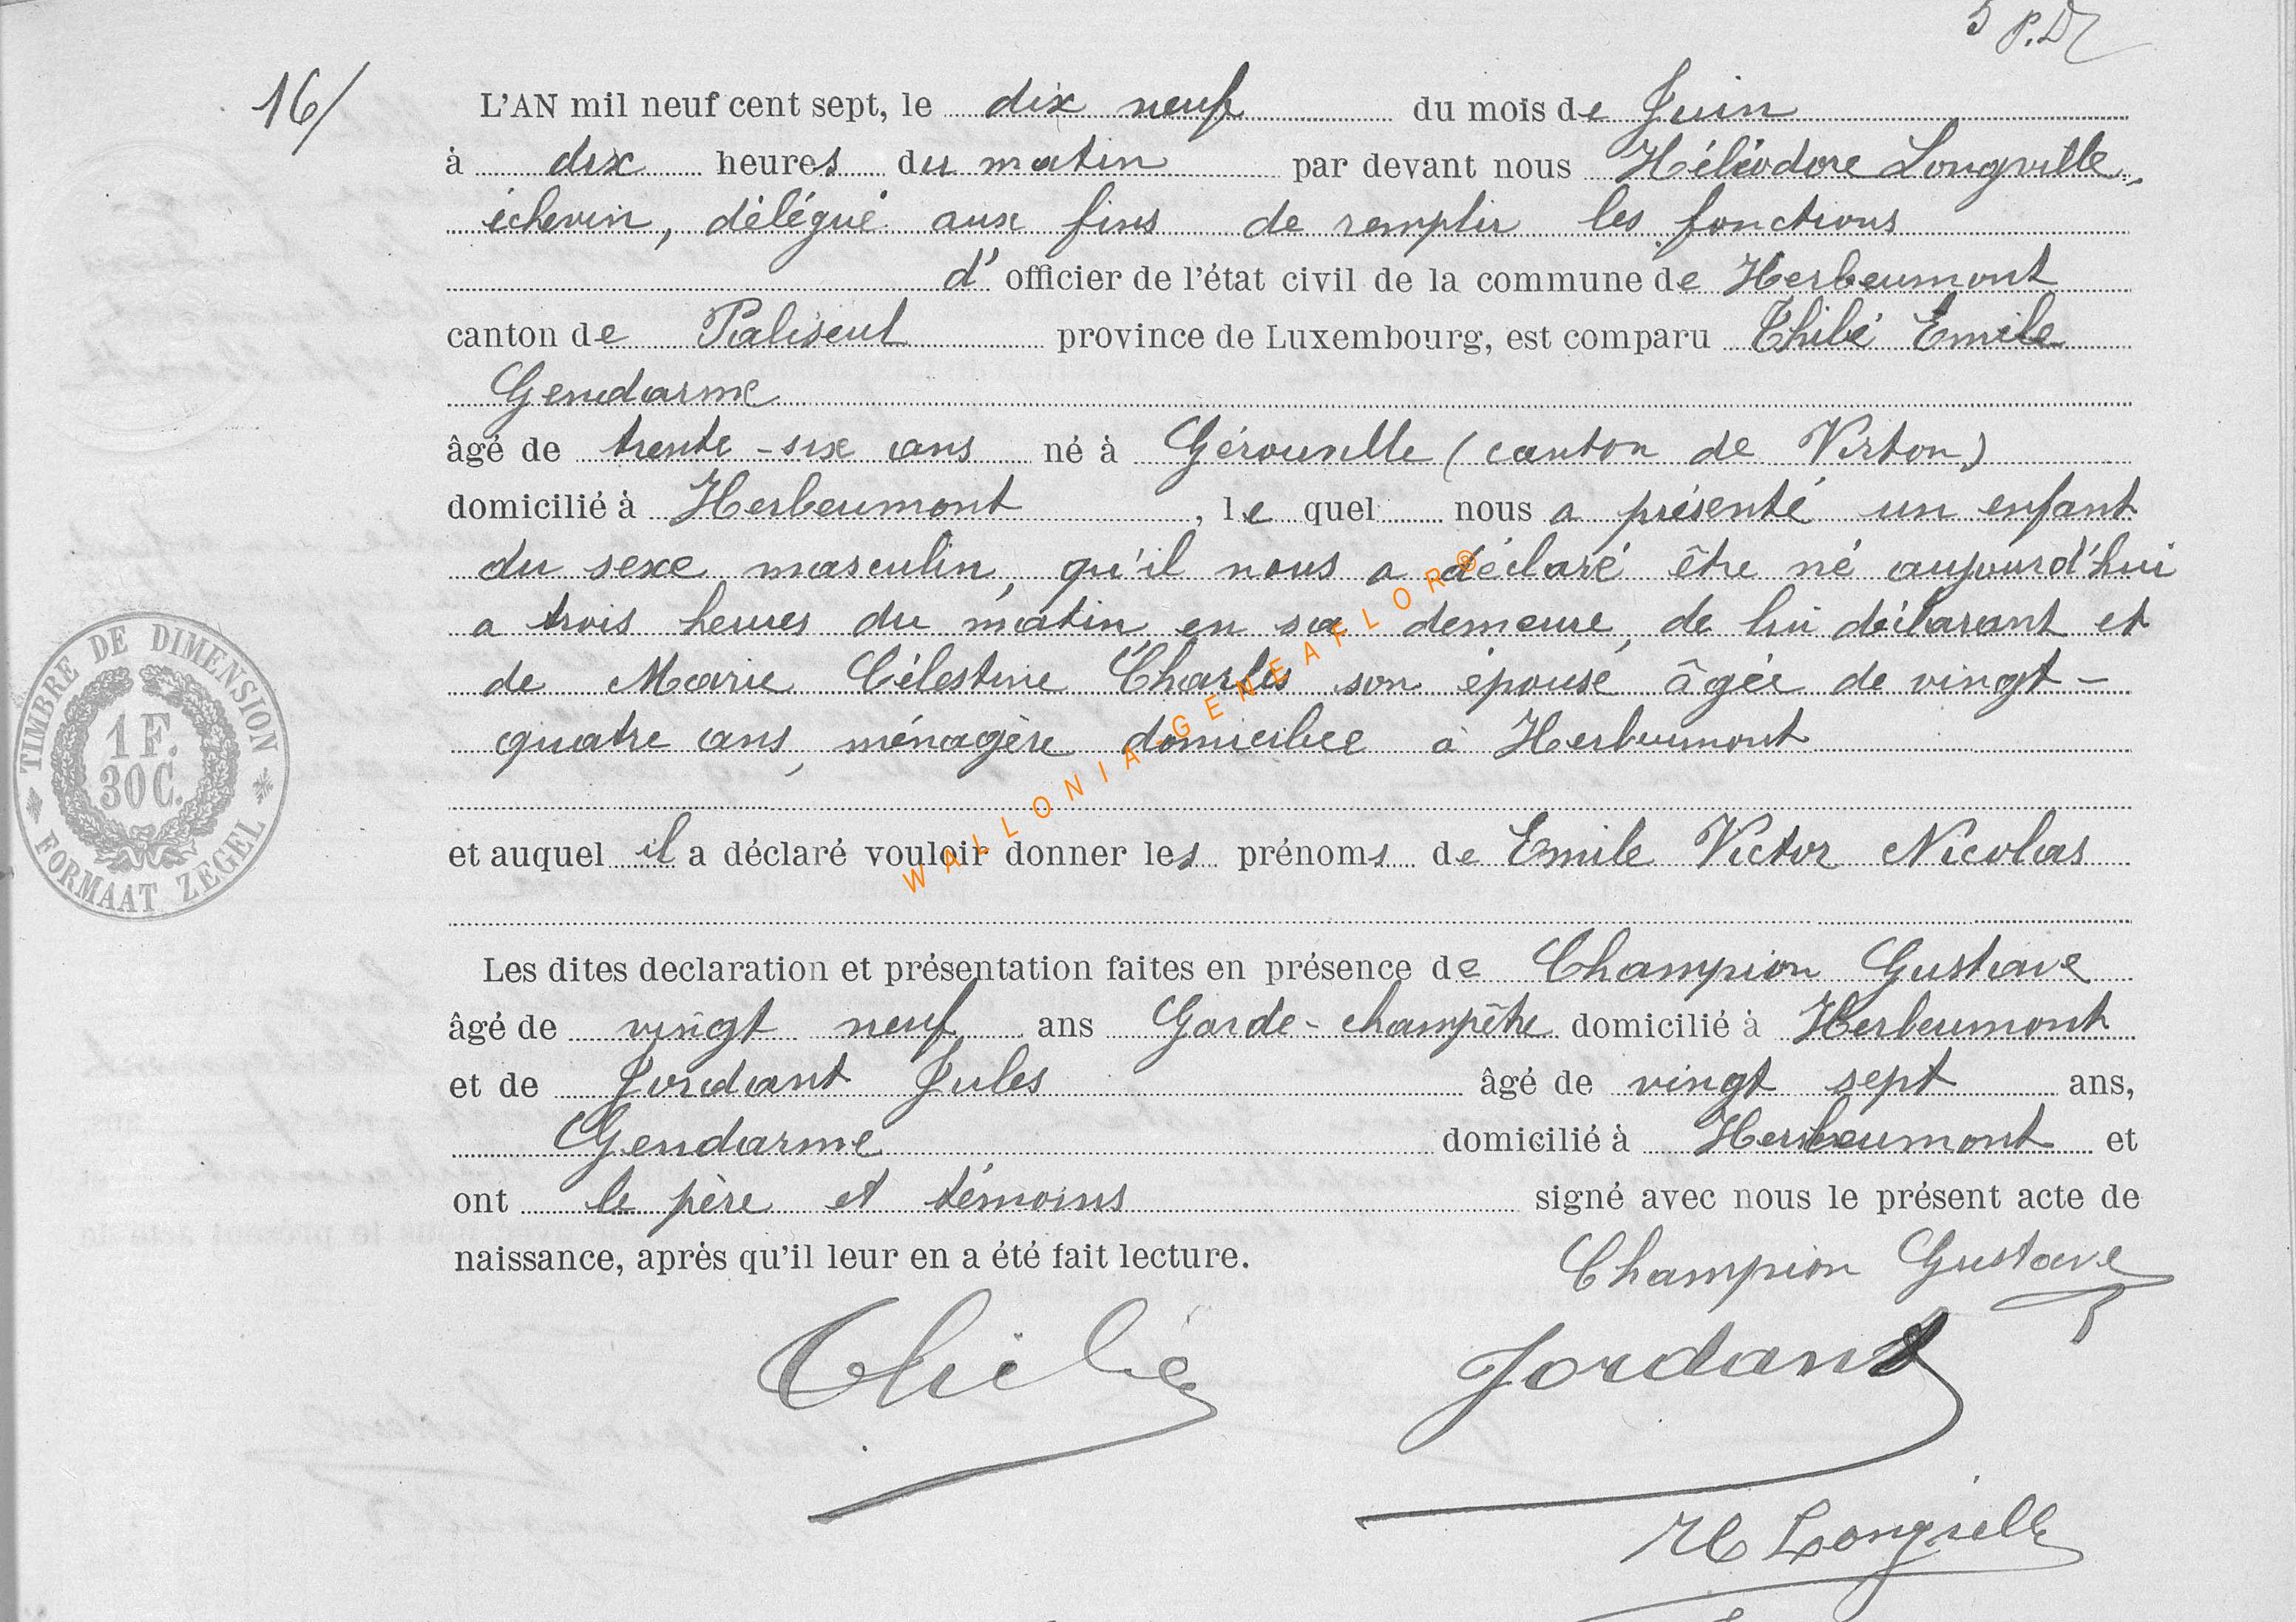 5 P.D
16/
L'AN mil neuf cent sept, le dix neuf du mois de Juin
à dix heures du matin par devant nous Héliodore Longville,
échevin, délégué aux fins de remplir les fonctions
d' officier de l'état civil de la commune de Herbeumont
canton de Paliseul province de Luxembourg, est comparu Thilé Emile
Gendarme
âgé de trente-six ans né à Gérouville (canton de Virton)
domicilié à Herbeumont, le quel nous a présenté un enfant
du sexe masculin, qu'il nous a déclaré être né aujourd'hui
a trois heures du matin en sa demeure, de lui déclarant et
de Marie Célestine Charles son épouse âgée de vingt-
quatre ans, ménagère domiciliée à Herbeumont
et auquel il a déclaré vouloir donner les prénoms de Emile Victor Nicolas
Les dites declaration et présentation faites en présence de Champion Gustave
âgé de vingt neuf ans Garde-champêtre domicilié à Herbeumont
et de Jordant Jules âgé de vingt sept ans,
Gendarme domicilié à Herbeumont et
ont le père et témoins signé avec nous le présent acte de
naissance, aprés qu'il leur en a été fait lecture.
Champion Gustave
Thilé
Jordant
H Longville
TIMBRE DE DIMENSION
1 F.
30 C.
FORMAAT ZEGEL
WALLONIA-GENEAFLOR®